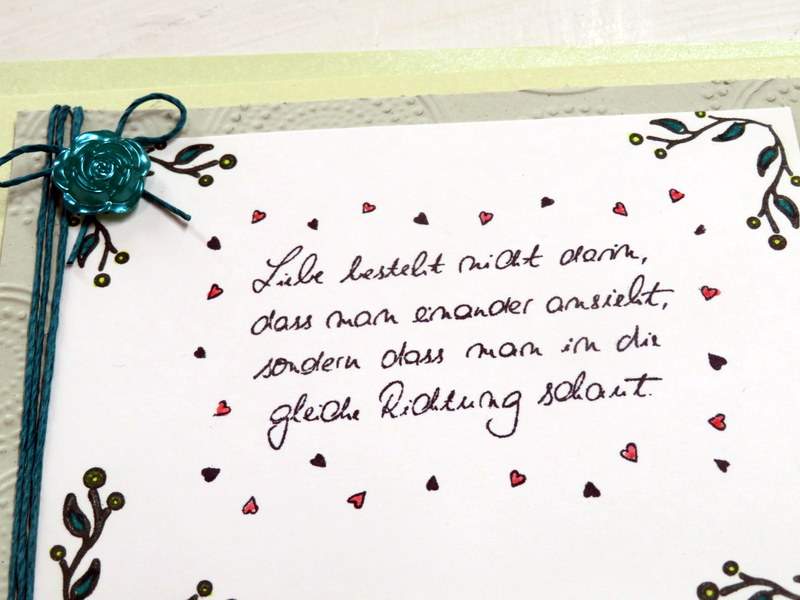 Liebe besteht nicht darin,
dass man einander ansieht,
sondern dass man in die
gleiche Richtung schaut.